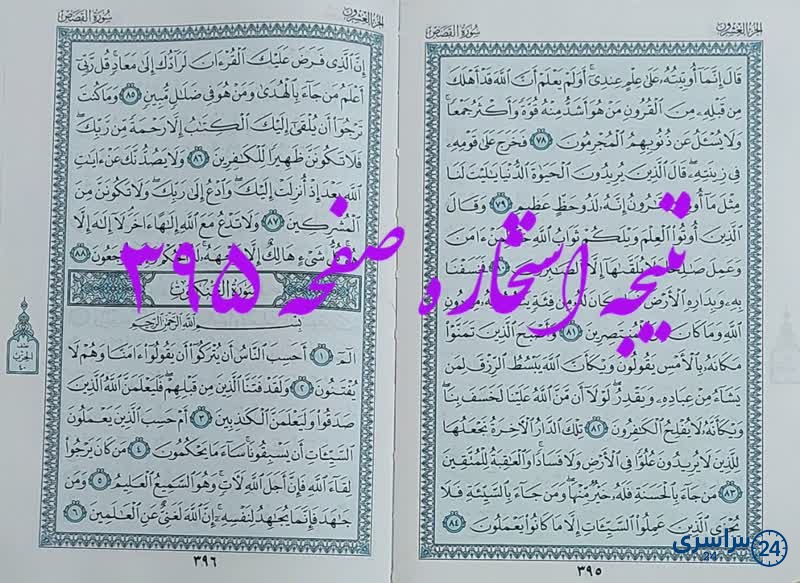 الجزء العشرون
سورة القصص
قَالَ إِنَّمَآ أُوتِيتُهُۥ عَلَىٰ عِلْمٍ عِندِىٓ ۚ أَوَلَمْ يَعْلَمْ أَنَّ ٱللَّهَ قَدْ أَهْلَكَ
مِن قَبْلِهِۦ مِنَ ٱلْقُرُونِ مَنْ هُوَ أَشَدُّ مِنْهُ قُوَّةً وَأَكْثَرُ جَمْعًا ۚ
وَلَا يُسْـَٔلُ عَن ذُنُوبِهِمُ ٱلْمُجْرِمُونَ ٧٨ فَخَرَجَ عَلَىٰ قَوْمِهِۦ
فِى زِينَتِهِۦ ۖ قَالَ ٱلَّذِينَ يُرِيدُونَ ٱلْحَيَوٰةَ ٱلدُّنْيَا يَٰلَيْتَ لَنَا
مِثْلَ مَآ أُوتِىَ قَٰرُونُ إِنَّهُۥ لَذُو حَظٍّ عَظِيمٍ ٧٩ وَقَالَ
ٱلَّذِينَ أُوتُوا۟ ٱلْعِلْمَ وَيْلَكُمْ ثَوَابُ ٱللَّهِ خَيْرٌ لِّمَنْ ءَامَنَ
وَعَمِلَ صَٰلِحًا وَلَا يُلَقَّىٰهَآ إِلَّا ٱلصَّٰبِرُونَ ٨٠ فَخَسَفْنَا
بِهِۦ وَبِدَارِهِ ٱلْأَرْضَ فَمَا كَانَ لَهُۥ مِن فِئَةٍ يَنصُرُونَهُۥ مِن دُونِ
ٱللَّهِ وَمَا كَانَ مِنَ ٱلْمُنتَصِرِينَ ٨١ وَأَصْبَحَ ٱلَّذِينَ تَمَنَّوْا۟
مَكَانَهُۥ بِٱلْأَمْسِ يَقُولُونَ وَيْكَأَنَّ ٱللَّهَ يَبْسُطُ ٱلرِّزْقَ لِمَن
يَشَآءُ مِنْ عِبَادِهِۦ وَيَقْدِرُ ۖ لَوْلَآ أَن مَّنَّ ٱللَّهُ عَلَيْنَا لَخَسَفَ بِنَا ۖ
وَيْكَأَنَّهُۥ لَا يُفْلِحُ ٱلْكَٰفِرُونَ ٨٢ تِلْكَ ٱلدَّارُ ٱلْأَخِرَةُ نَجْعَلُهَا
لِلَّذِينَ لَا يُرِيدُونَ عُلُوًّا فِى ٱلْأَرْضِ وَلَا فَسَادًا ۚ وَٱلْعَٰقِبَةُ لِلْمُتَّقِينَ
٨٣ مَن جَآءَ بِٱلْحَسَنَةِ فَلَهُۥ خَيْرٌ مِّنْهَا ۖ وَمَن جَآءَ بِٱلسَّيِّئَةِ فَلَا
يُجْزَى ٱلَّذِينَ عَمِلُوا۟ ٱلسَّيِّـَٔاتِ إِلَّا مَا كَانُوا۟ يَعْمَلُونَ ٨٤
٣٩٥
الجزء العشرون
سورة القصص
إِنَّ ٱلَّذِى فَرَضَ عَلَيْكَ ٱلْقُرْءَانَ لَرَآدُّكَ إِلَىٰ مَعَادٍ ۚ قُل رَّبِّىٓ
أَعْلَمُ مَن جَآءَ بِٱلْهُدَىٰ وَمَنْ هُوَ فِى ضَلَٰلٍ مُّبِينٍ ٨٥ وَمَا كُنتَ
تَرْجُوٓا۟ أَن يُلْقَىٰٓ إِلَيْكَ ٱلْكِتَٰبُ إِلَّا رَحْمَةً مِّن رَّبِّكَ ۖ
فَلَا تَكُونَنَّ ظَهِيرًا لِّلْكَٰفِرِينَ ٨٦ وَلَا يَصُدُّنَّكَ عَنْ ءَايَٰتِ
ٱللَّهِ بَعْدَ إِذْ أُنزِلَتْ إِلَيْكَ ۖ وَٱدْعُ إِلَىٰ رَبِّكَ ۖ وَلَا تَكُونَنَّ مِنَ
ٱلْمُشْرِكِينَ ٨٧ وَلَا تَدْعُ مَعَ ٱللَّهِ إِلَٰهًا ءَاخَرَ ۘ لَآ إِلَٰهَ إِلَّا
هُوَ ۚ كُلُّ شَىْءٍ هَالِكٌ إِلَّا وَجْهَهُۥ ۚ لَهُ ٱلْحُكْمُ وَإِلَيْهِ تُرْجَعُونَ ٨٨
سورة العنكبوت
بِسْمِ ٱللَّهِ ٱلرَّحْمَٰنِ ٱلرَّحِيمِ
الٓمٓ ١ أَحَسِبَ ٱلنَّاسُ أَن يُتْرَكُوٓا۟ أَن يَقُولُوٓا۟ ءَامَنَّا وَهُمْ لَا
يُفْتَنُونَ ٢ وَلَقَدْ فَتَنَّا ٱلَّذِينَ مِن قَبْلِهِمْ ۖ فَلَيَعْلَمَنَّ ٱللَّهُ ٱلَّذِينَ
صَدَقُوا۟ وَلَيَعْلَمَنَّ ٱلْكَٰذِبِينَ ٣ أَمْ حَسِبَ ٱلَّذِينَ يَعْمَلُونَ
ٱلسَّيِّـَٔاتِ أَن يَسْبِقُونَا ۚ سَآءَ مَا يَحْكُمُونَ ٤ مَن كَانَ يَرْجُوا۟
لِقَآءَ ٱللَّهِ فَإِنَّ أَجَلَ ٱللَّهِ لَأَتٍ ۚ وَهُوَ ٱلسَّمِيعُ ٱلْعَلِيمُ ٥ وَمَن
جَٰهَدَ فَإِنَّمَا يُجَٰهِدُ لِنَفْسِهِۦٓ ۚ إِنَّ ٱللَّهَ لَغَنِىٌّ عَنِ ٱلْعَٰلَمِينَ ٦
٣٩٦
الحزب
٤٠
نتیجه استخاره صفحه ۳۹۵
سراسری 24
24